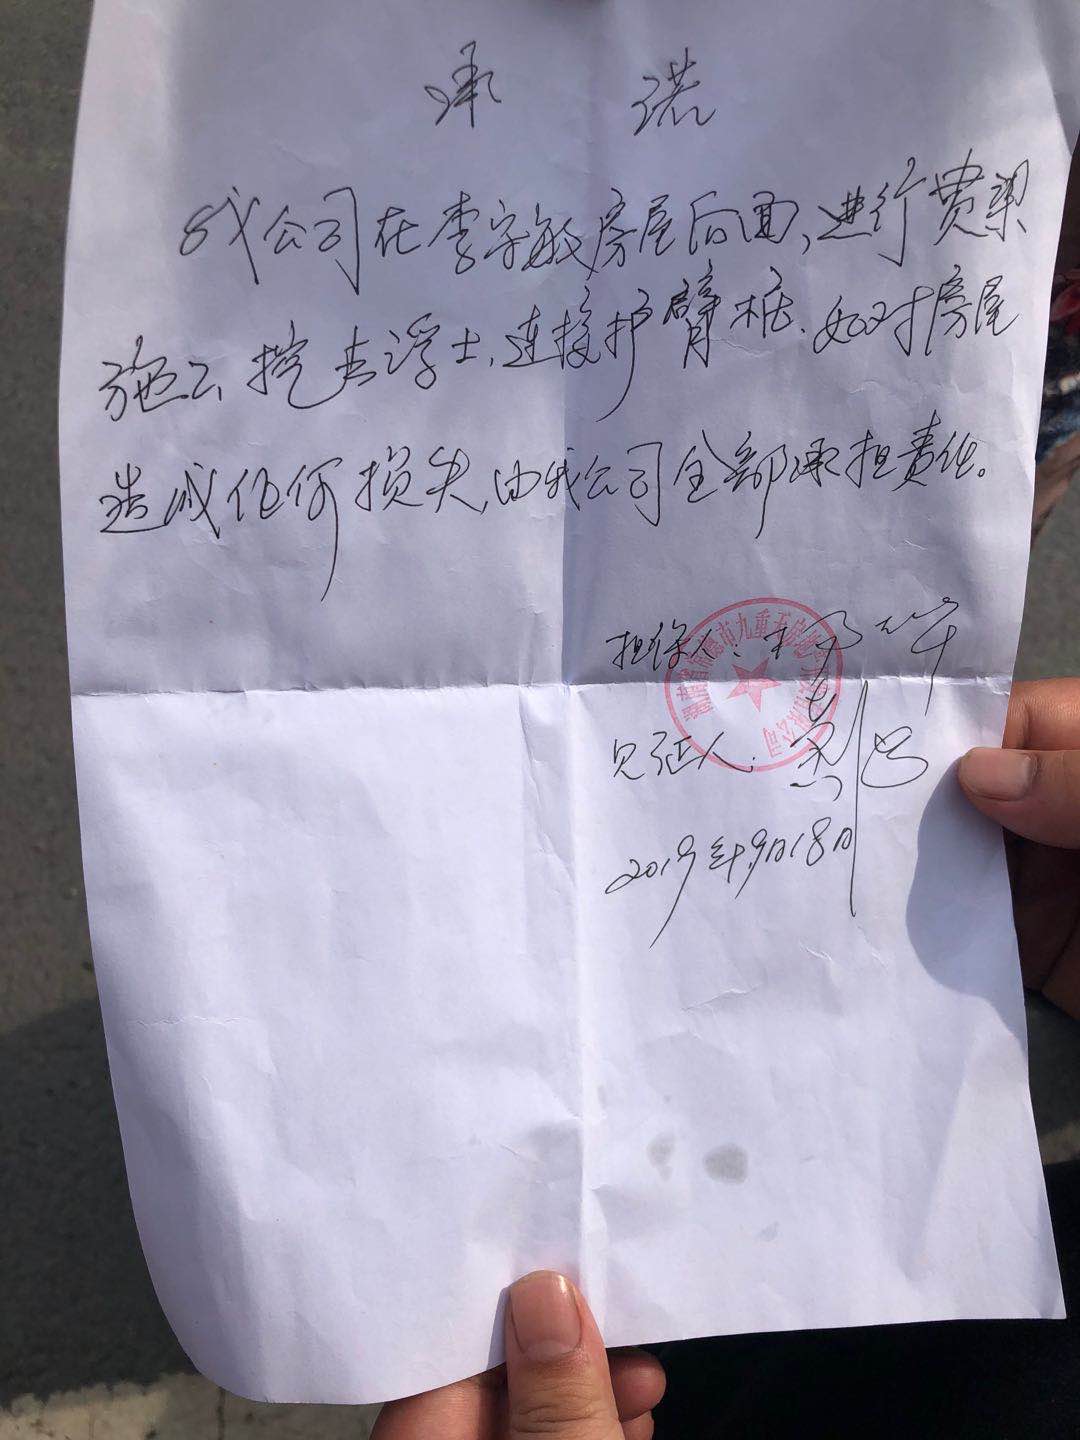 承 诺
我公司在李字敏房屋后面,进行贯梁
施工,挖去浮土,连接护臂桩.如对房屋
造成任何损失,由我公司全部承担责任。
担保人:
见证人:
2019年9月18日
湖南省常德市九重天房地产开发有限公司